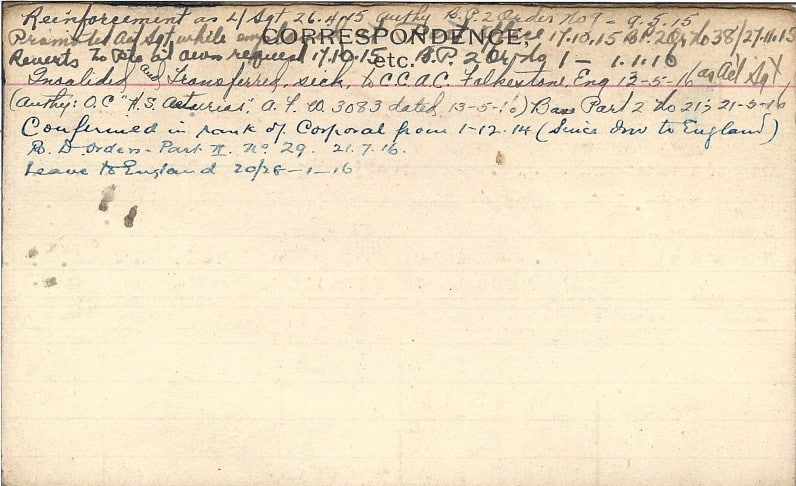 Reinforcement as L/Sgt 26.4.15 Authy B.P.2 Order No 9 - 9.5.15
Promoted Act Sgt, while 17.10.15 B.P. 2 No 38/27.11.15
CORRESPONDENCE,
Reverts to Pte at own request 17.10.15 B.P. 2 1 - 1.1.16
etc.
Invalided and Transferred, sick, to C.C.A.C. Folkestone, Eng 13-5-16 as Act Sgt
(Authy: O.C "H.S. Asturias". A.F. W. 3083 dated 13-5-16) Base Part 2 No 21; 21-5-16
Confirmed in rank of Corporal from 1-12-14 (Since Inv to England)
B. D. Orders - Part II. No 29. 21.7.16.
Leave to England 20/28-1-16